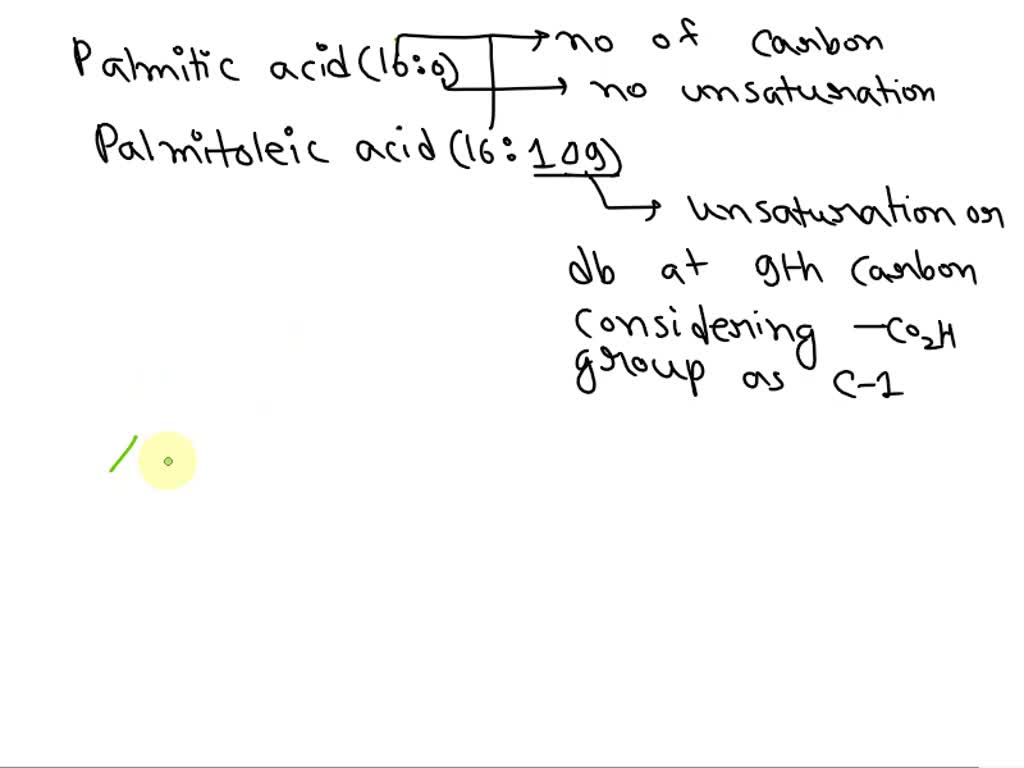 Palmitic acid (16:0) → no of carbon
→ no unsaturation
Palmitoleic acid (16:1Δ9)
→ unsaturation or
db at 9th carbon
considering -CO2H
group as C-1